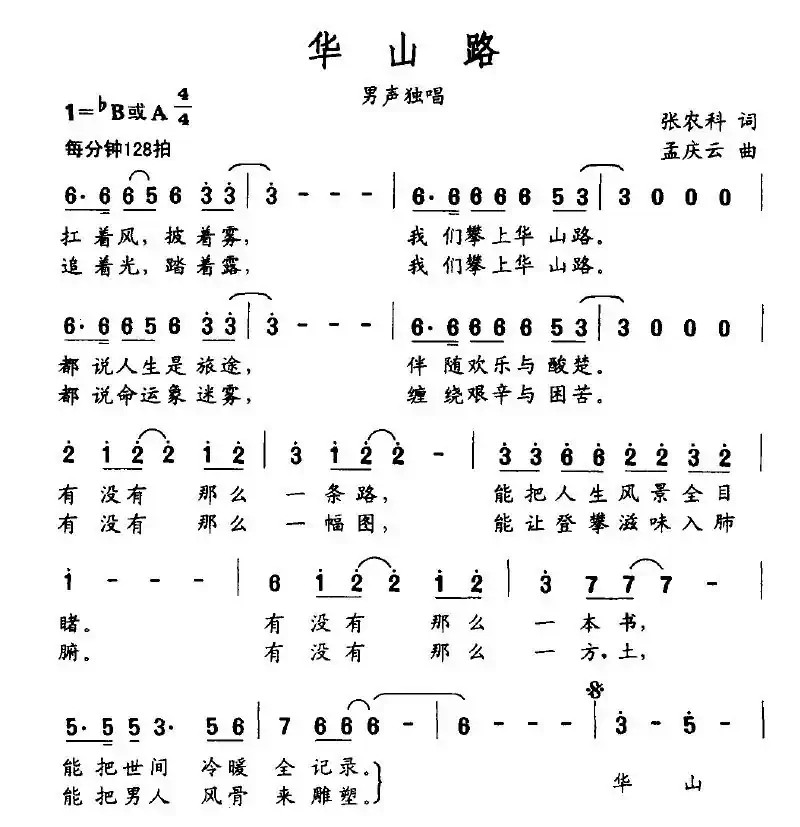 华山路
男声独唱
1=♭B或A 4/4
每分钟128拍
张农科 词
孟庆云 曲
6· 6 6 5 6 3 3 | 3 - - - | 6· 6 6 6 6 5 3 | 3 0 0 0 |
扛着风,披着雾, 我们攀上华山路。
追着光,踏着露, 我们攀上华山路。
6· 6 6 5 6 3 3 | 3 - - - | 6· 6 6 6 6 5 3 | 3 0 0 0 |
都说人生是旅途, 伴随欢乐与酸楚。
都说命运象迷雾, 缠绕艰辛与困苦。
2 1 2 2 1 2 | 3 1 2 2 - | 3 3 6 6 2 2 3 2 |
有没有那么一条路, 能把人生风景全目
有没有那么一幅图, 能让登攀滋味入肺
1 - - - | 6 1 2 2 1 2 | 3 7 7 7 - |
睹。 有没有那么一本书,
腑。 有没有那么一方土,
5· 5 5 3· 5 6 | 7 6 6 6 - | 6 - - - | 3 - 5 - |
能把世间冷暖全记录。
能把男人风骨来雕塑。
华山